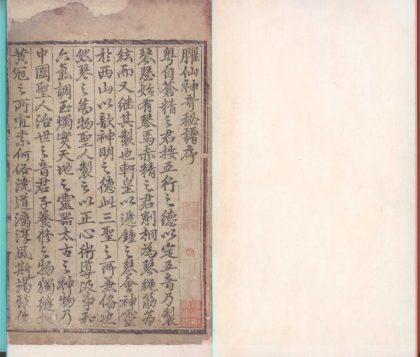 臞仙神奇秘譜序
粵自蒼精之君按五行之德以定五音乃製
琴瑟始有琴焉赤精之君削桐為琴繩絲為
絃而又繼其製也軒皇以遞鍾之琴會神靈
於西山以歆神明之德此三聖之所無倦也
然琴之為物聖人製之以正心術導政事和
六氣調玉燭實天地之靈器太古之神物乃
中國聖人治世之音君子養修之物獨縫掖
黃冠之所宜柰何俗渙道漓淳風斯竭